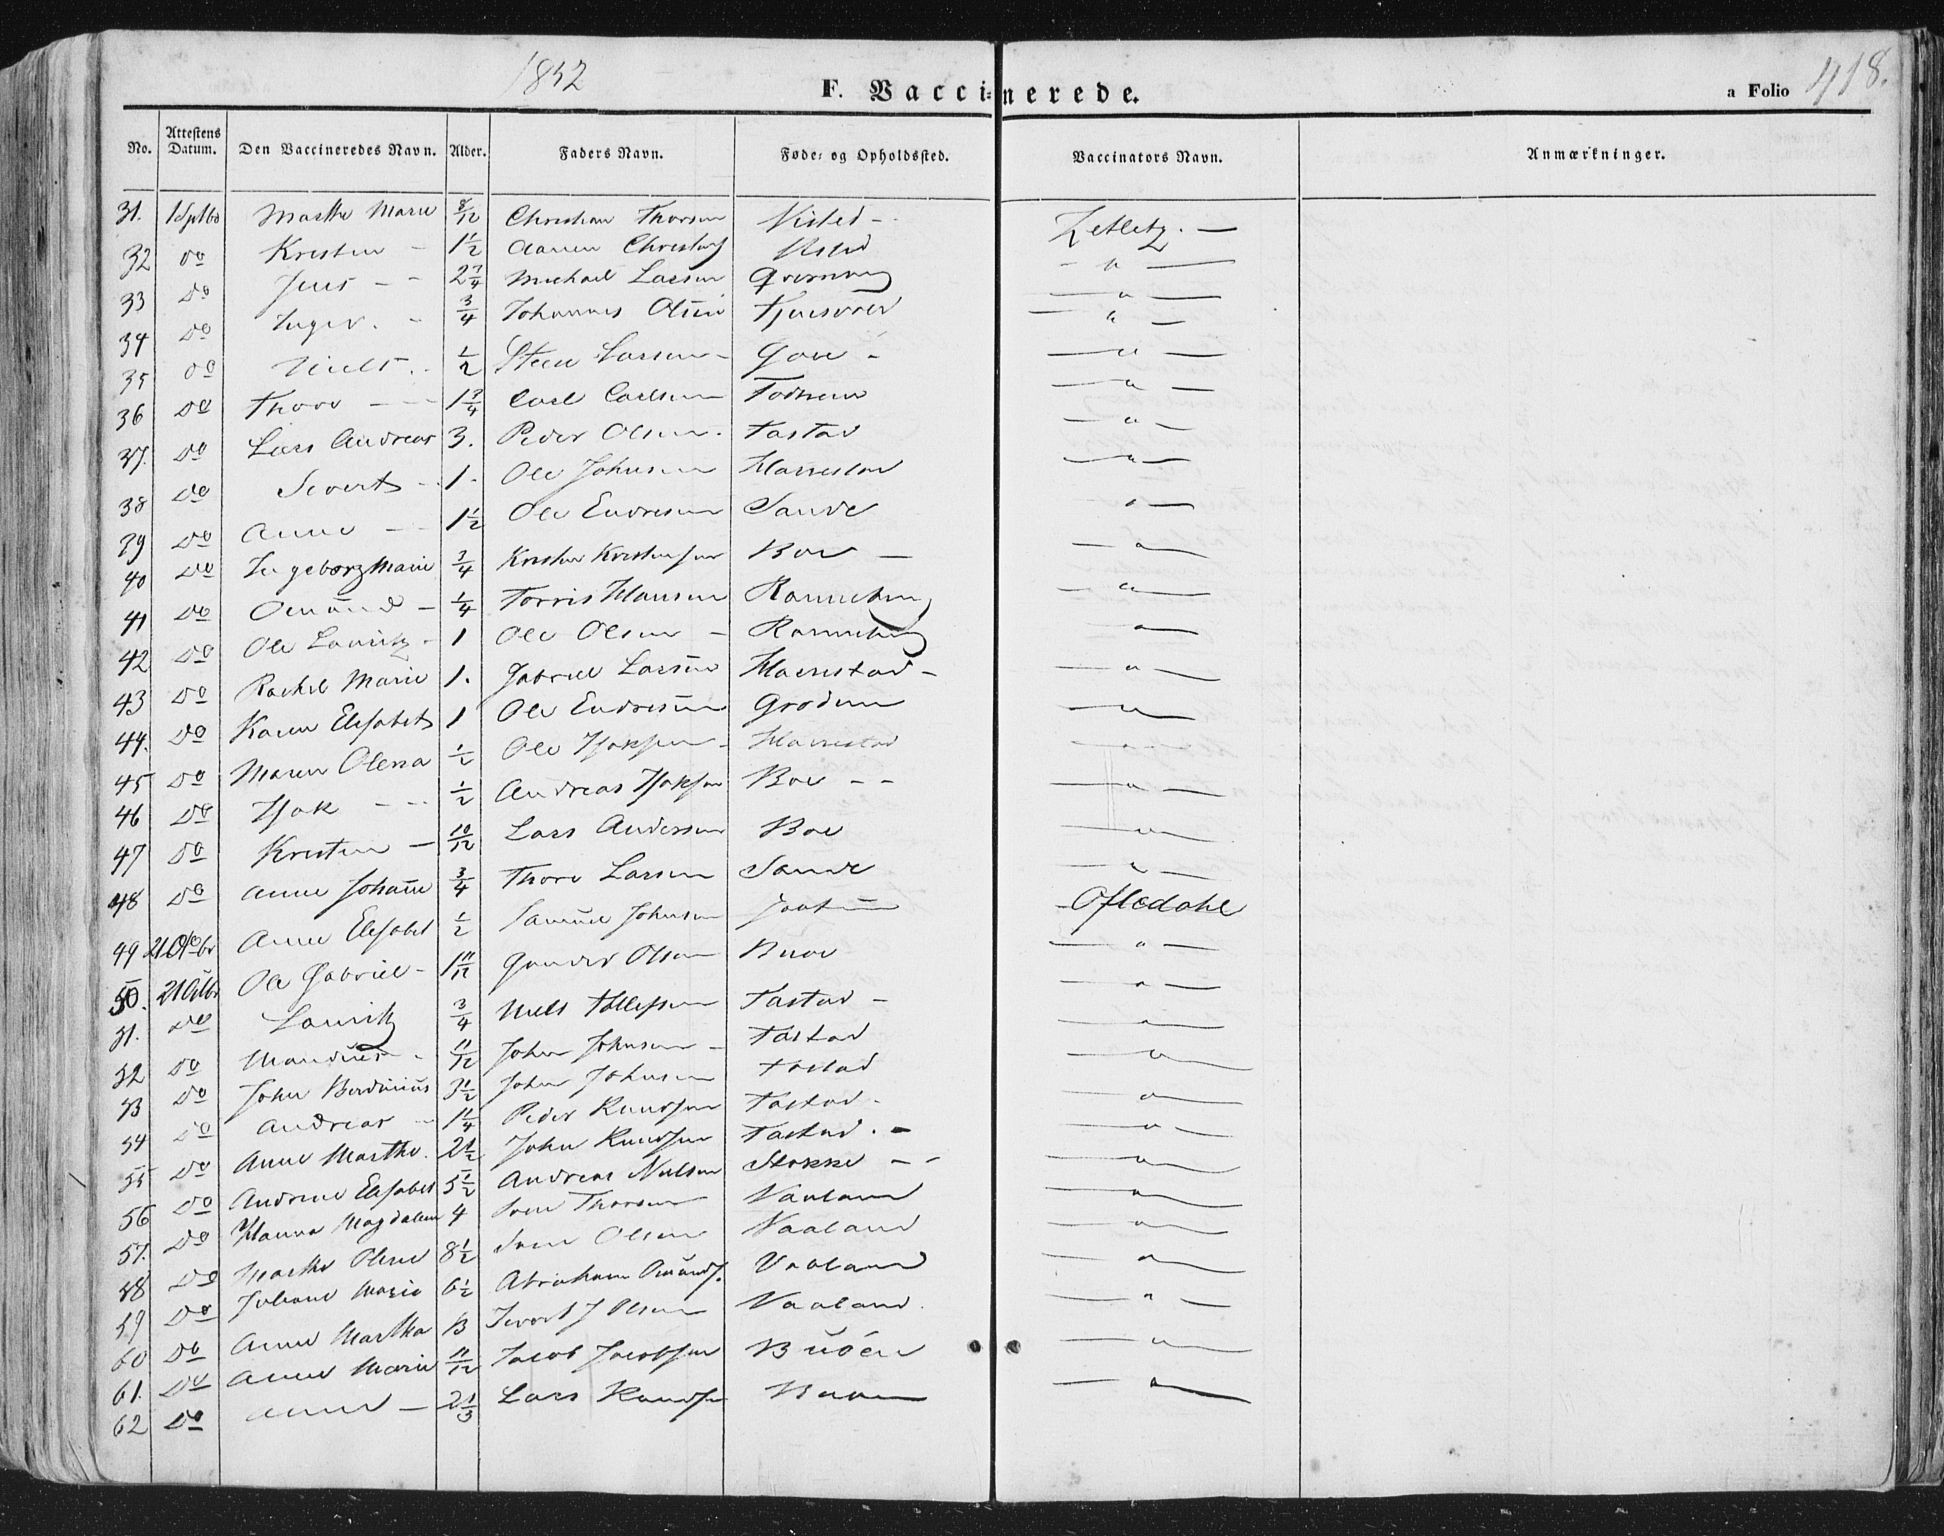 1852
F. Vaccinerede.
a Folio 418.
No. Attestens Datum. Den Vaccineredes Navn. Alder. Faders Navn. Føde- og Opholdssted. Vaccinators Navn. Anmærkninger.
31. Marthe Marie 8/12 Christian Thorsen Zetletz. —
32 do Kristen – 1 1/2 Christens — " —
33 Do Jens – – 2 Michael Larsen — " —
34 Do Inger. – 3/4 Johannes Olsen — " —
35 do Niels. – 1/2 Steen Larsen – Goue – — " —
36 Do Thore – – 1 3/4 Carl Carlsen Todnem — " —
37. Do Lars Andreas 3. Peder Olsen. Tastad — " —
38 Do Sivert – 1. Ole Johnsen Harrestad — " —
39 Do Anne – – 1 1/2 Ole Endresen Sande — " —
40 Do Ingeborg Marie 3/4 Kristen Kristensen Boe — — " —
41 Do Omund – 1/4 Torris Hansen — " —
42 Do Ole Lauritz – 1 Ole Olsen – — " —
43 Do Rachel Marie 1. Gabriel Larsen Harrestad – — " —
44. Do Karen Elisabet 1 Ole Endresen Grodem — " —
45 Do Maren Olena 1/2 Ole Isaksen – Harrestad — " —
46 Do Isak – – 1/2 Andreas Isaksen Boe – – — " —
47 Do Kristen – 10/12 Lars Andersen Boe — " —
48 Do Anne Johanne 3/4 Thore Larsen Sande — " —
49 21 Octbr Anne Elisabet 1/2 Samuel Johnsen Jaatun Oftedahl
50. 21 Octbr Ole Gabriel – 1 11/12 Gunder Olsen Buoe — " —
51. Do Lauritz 3/4 Niels Tollefsen Tastad – — " —
52 Do 11/12 John Johnsen – Tastad — " —
53 Do John Berdinius 3 1/2 John Johnsen Tastad — " —
54 Do Andreas – Peder Knudsen Tastad. — " —
55 Do Anne Marthe. 2 1/2 John Knudsen Tastad. – — " —
56 Do Andrine Elisabet 5 1/2 Andreas Nielsen Stokke – – — " —
57. Do Hanna Magdalene 4 Sven Thorsen Vaaland — " —
58 Do Marthe Olene 8 1/2 Sven Olsen Vaaland — " —
59 Do Juliane Marie 6 1/2 Abraham Omunds. Vaaland — " —
60 Do Anne Martha Olsen Vaaland. — " —
61. Do Anne Marie 11/12 Jacob Jacobsen Buøen — " —
62 Do Anne – 2 1/3 Lars Knudsen Buøen — " —